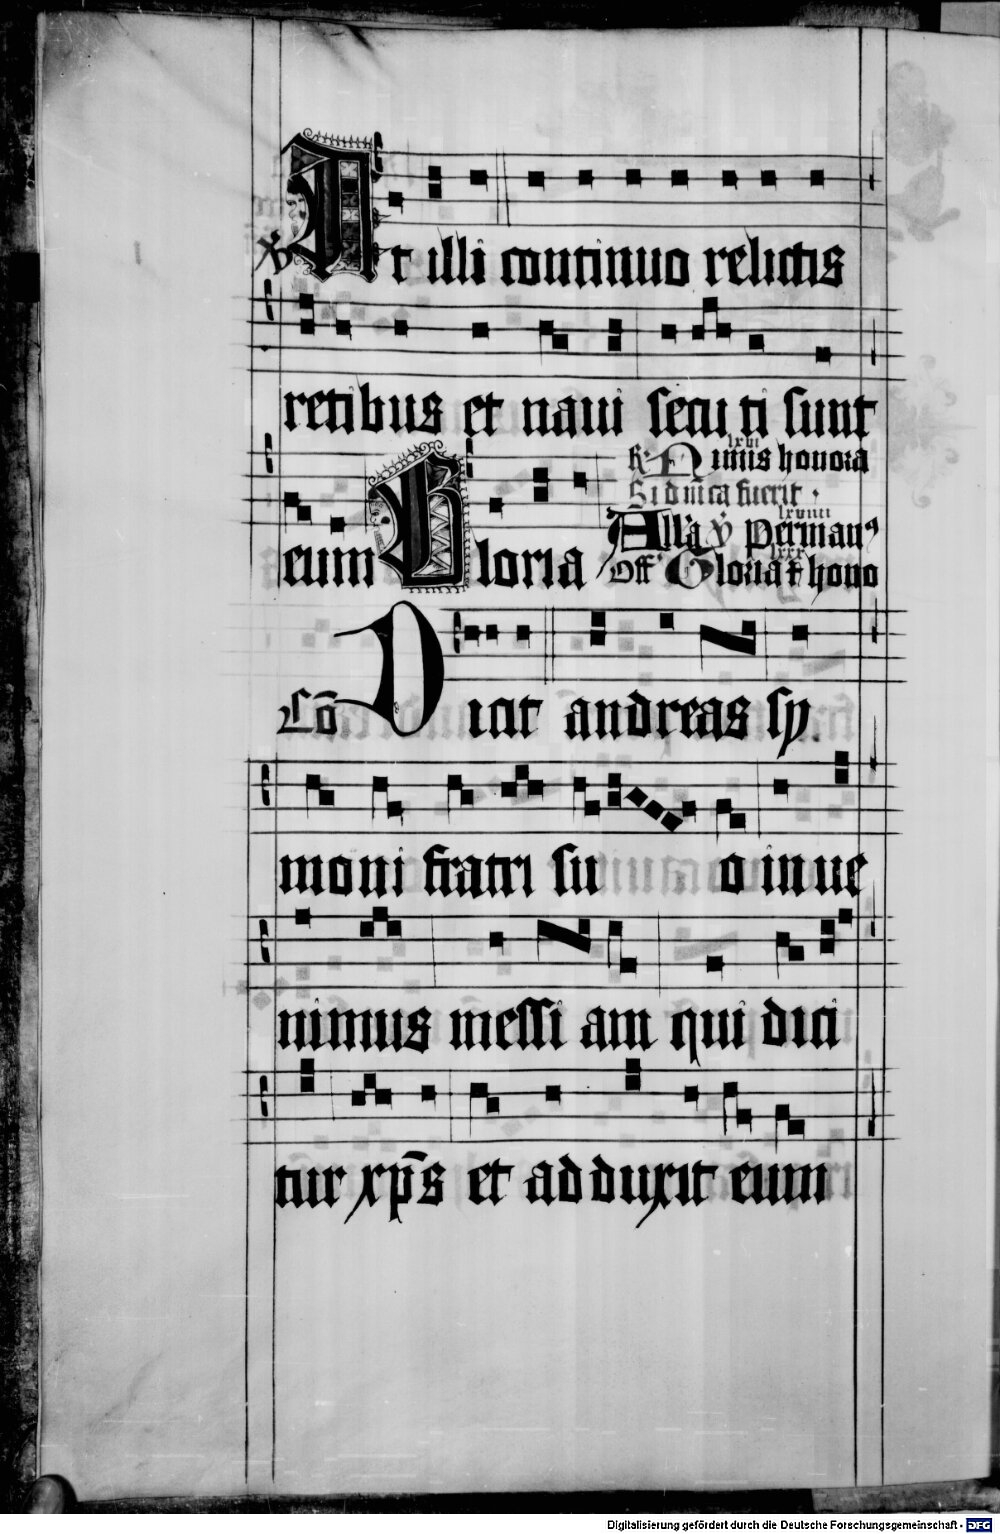 ℣ At illi continuo relictis
retibus et naui secuti sunt
eum Gloria
lxiii
R. Nimis honora
Si dnica fuerit .
lxviiii
Alla ℣ Perman9
lxxx
Off Gloria et hono
Cō Dicit andreas sy.
moni fratri suo inue
nimus messiam qui dici
tur xp̄s et adduxit eum
Digitalisierung gefördert durch die Deutsche Forschungsgemeinschaft - DFG